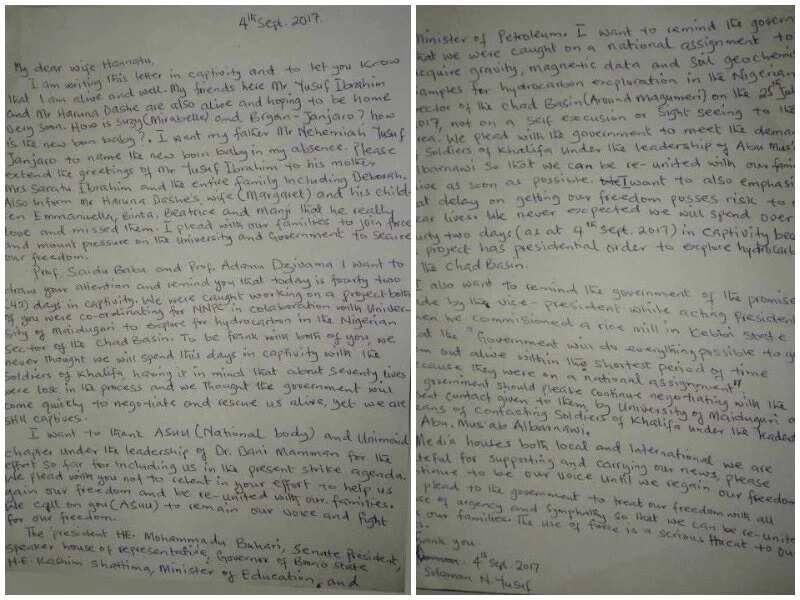 4th Sept. 2017.
My dear wife Hannatu,
I am writing this letter in captivity and to let you know
that I am alive and well. My friends here Mr. Yusuf Ibrahim
and Mr Haruna Dashe are also alive and hoping to be home
very soon. How is Suzy (Mirabelle) and Bryan-Janjaro? how
is the new born baby?. I want my father Mr Nehemiah Yusuf
Janjaro to name the new born baby in my absence. Please
extend the greetings of Mr Yusuf Ibrahim to his mother
Mrs Saratu Ibrahim and the entire family including Deborah.
Also inform Mr Haruna Dashe's wife (Margaret) and his child-
ren Emmanuella, Binta, Beatrice and Manji that he really
love and missed them. I plead with our families to join force
and mount pressure on the University and Government to secure
our freedom.
Prof. Saidu Baba and Prof. Adamu Dzivama I want to
draw your attention and remind you that today is fourty two
(42) days in captivity. We were caught working on a project both
of you were co-ordinating for NNPC in colaboration with Univer-
sity of Maiduguri to explore for hydrocarbon in the Nigerian
Sector of the Chad Basin. To be frank with both of you, we
never thought we will spend this days in captivity with the
Soldiers of Khalifa having it in mind that about seventy lives
were lost in the process and we thought the government will
come quickly to negotiate and rescue us alive, yet we are
still captives.
I want to thank ASUU (National body) and Unimaid
chapter under the leadership of Dr. Dani Mamman for the
effort so far for including us in the present strike agenda.
We plead with you not to relent in your effort to help us
gain our freedom and be re-united with our families.
We call on you (ASUU) to remain our voice and fight
for our freedom.
The president HE. Mohammadu Buhari, Senate President,
speaker house of representative, Governor of Borno state
H.E. Kashim Shattima, Minister of Education, and
Minister of Petroleum. I want to remind the govern
that we were caught on a national assignment to
acquire gravity, magnetic data and soil geochemis
samples for hydrocarbon exploration in the Nigerian
Sector of the Chad Basin (Around Magumeri) on the 25th Jul
2017, not on a self excusion or sight seeing to the
area. We plead with the government to meet the deman
Soldiers of Khalifa under the leadership of Abu Mus'
Albarnawi so that we can be re-united with our fami
live as soon as possible. I want to also emphasi
that delay on getting our freedom posses risk to o
dear lives. We never expected we will spend over
urty two days (as at 4th Sept. 2017) in captivity beca
project has presidential order to explore hydrocarb
the Chad Basin.
I also want to remind the government of the promise
de by the vice-president while acting president
hen he commisioned a rice mill in Kebbi state
at the "Government will do everything possible to g
em out alive within the shortest period of time
cause they were on a national assignment".
government should please continue negotiating with the
sent contact given to them by University of Maiduguri
eans of contacting Soldiers of Khalifa under the leader
Abu. Mus'ab Albarnawi.
Media houses both local and International we are
teful for supporting and carrying our news, please
ntinue to be our voice until we regain our freedom
plead to the government to treat our freedom with all
se of urgency and symphathy so that we can be re-unite
our families. The use of force is a serious threat to our
ank you.
4th Sept. 2017
Solomon N. Yusuf